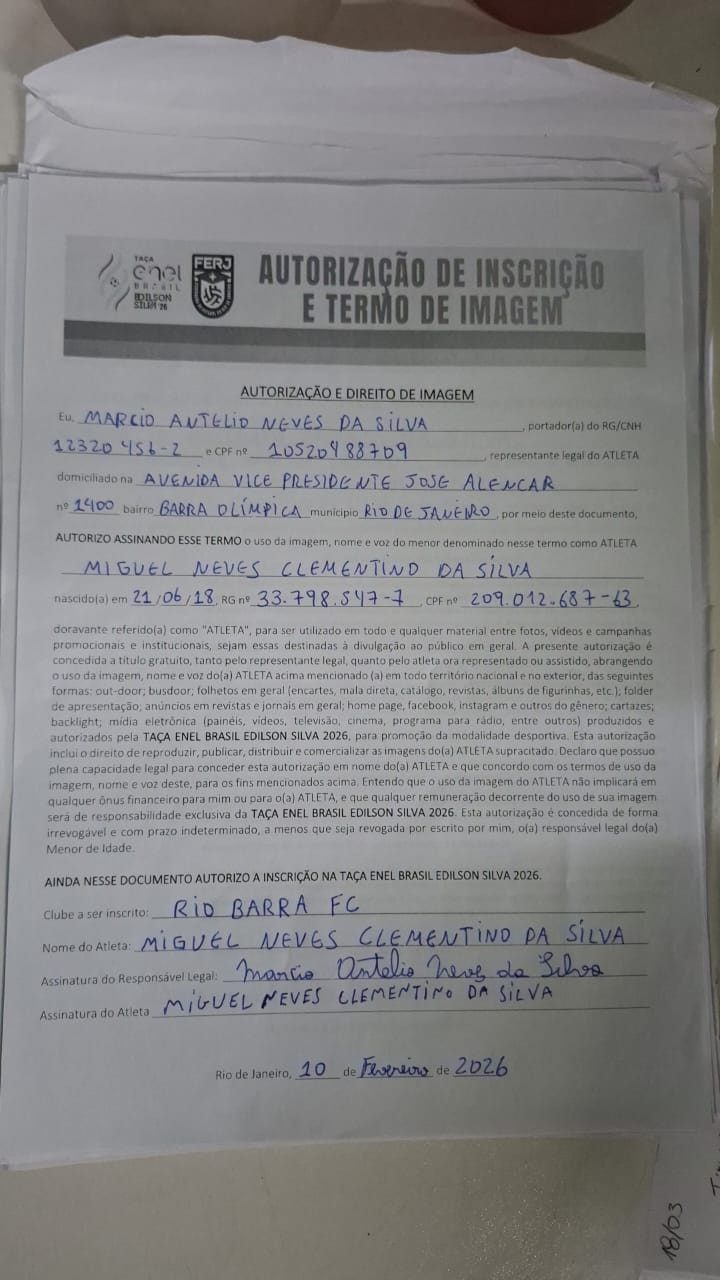 TAÇA
enel
BRASIL
EDILSON
SILVA '26
FERJ
AUTORIZAÇÃO DE INSCRIÇÃO
E TERMO DE IMAGEM
AUTORIZAÇÃO E DIREITO DE IMAGEM
Eu, MARCIO ANTELIO NEVES DA SILVA, portador(a) do RG/CNH
12320456-2 e CPF nº 10520488709, representante legal do ATLETA
domiciliado na AVENIDA VICE PRESIDENTE JOSE ALENCAR
nº 1400 bairro BARRA OLÍMPICA municipio RIO DE JANEIRO, por meio deste documento,
AUTORIZO ASSINANDO ESSE TERMO o uso da imagem, nome e voz do menor denominado nesse termo como ATLETA
MIGUEL NEVES CLEMENTINO DA SILVA
nascido(a) em 21/06/18, RG nº 33.798.547-7, CPF nº 209.012.687-63,
doravante referido(a) como "ATLETA", para ser utilizado em todo e qualquer material entre fotos, vídeos e campanhas
promocionais e institucionais, sejam essas destinadas à divulgação ao público em geral. A presente autorização é
concedida a título gratuito, tanto pelo representante legal, quanto pelo atleta ora representado ou assistido, abrangendo
o uso da imagem, nome e voz do(a) ATLETA acima mencionado (a) em todo território nacional e no exterior, das seguintes
formas: out-door; busdoor; folhetos em geral (encartes, mala direta, catálogo, revistas, álbuns de figurinhas, etc.); folder
de apresentação; anúncios em revistas e jornais em geral; home page, facebook, instagram e outros do gênero; cartazes;
backlight; mídia eletrônica (painéis, vídeos, televisão, cinema, programa para rádio, entre outros) produzidos e
autorizados pela TAÇA ENEL BRASIL EDILSON SILVA 2026, para promoção da modalidade desportiva. Esta autorização
inclui o direito de reproduzir, publicar, distribuir e comercializar as imagens do(a) ATLETA supracitado. Declaro que possuo
plena capacidade legal para conceder esta autorização em nome do(a) ATLETA e que concordo com os termos de uso da
imagem, nome e voz deste, para os fins mencionados acima. Entendo que o uso da imagem do ATLETA não implicará em
qualquer ônus financeiro para mim ou para o(a) ATLETA, e que qualquer remuneração decorrente do uso de sua imagem
será de responsabilidade exclusiva da TAÇA ENEL BRASIL EDILSON SILVA 2026. Esta autorização é concedida de forma
irrevogável e com prazo indeterminado, a menos que seja revogada por escrito por mim, o(a) responsável legal do(a)
Menor de Idade.
AINDA NESSE DOCUMENTO AUTORIZO A INSCRIÇÃO NA TAÇA ENEL BRASIL EDILSON SILVA 2026.
Clube a ser inscrito: RIO BARRA FC
Nome do Atleta: MIGUEL NEVES CLEMENTINO DA SILVA
Assinatura do Responsável Legal: Marcio Antelio Neves da Silva
Assinatura do Atleta MIGUEL NEVES CLEMENTINO DA SILVA
Rio de Janeiro, 10 de Fevereiro de 2026
18/03